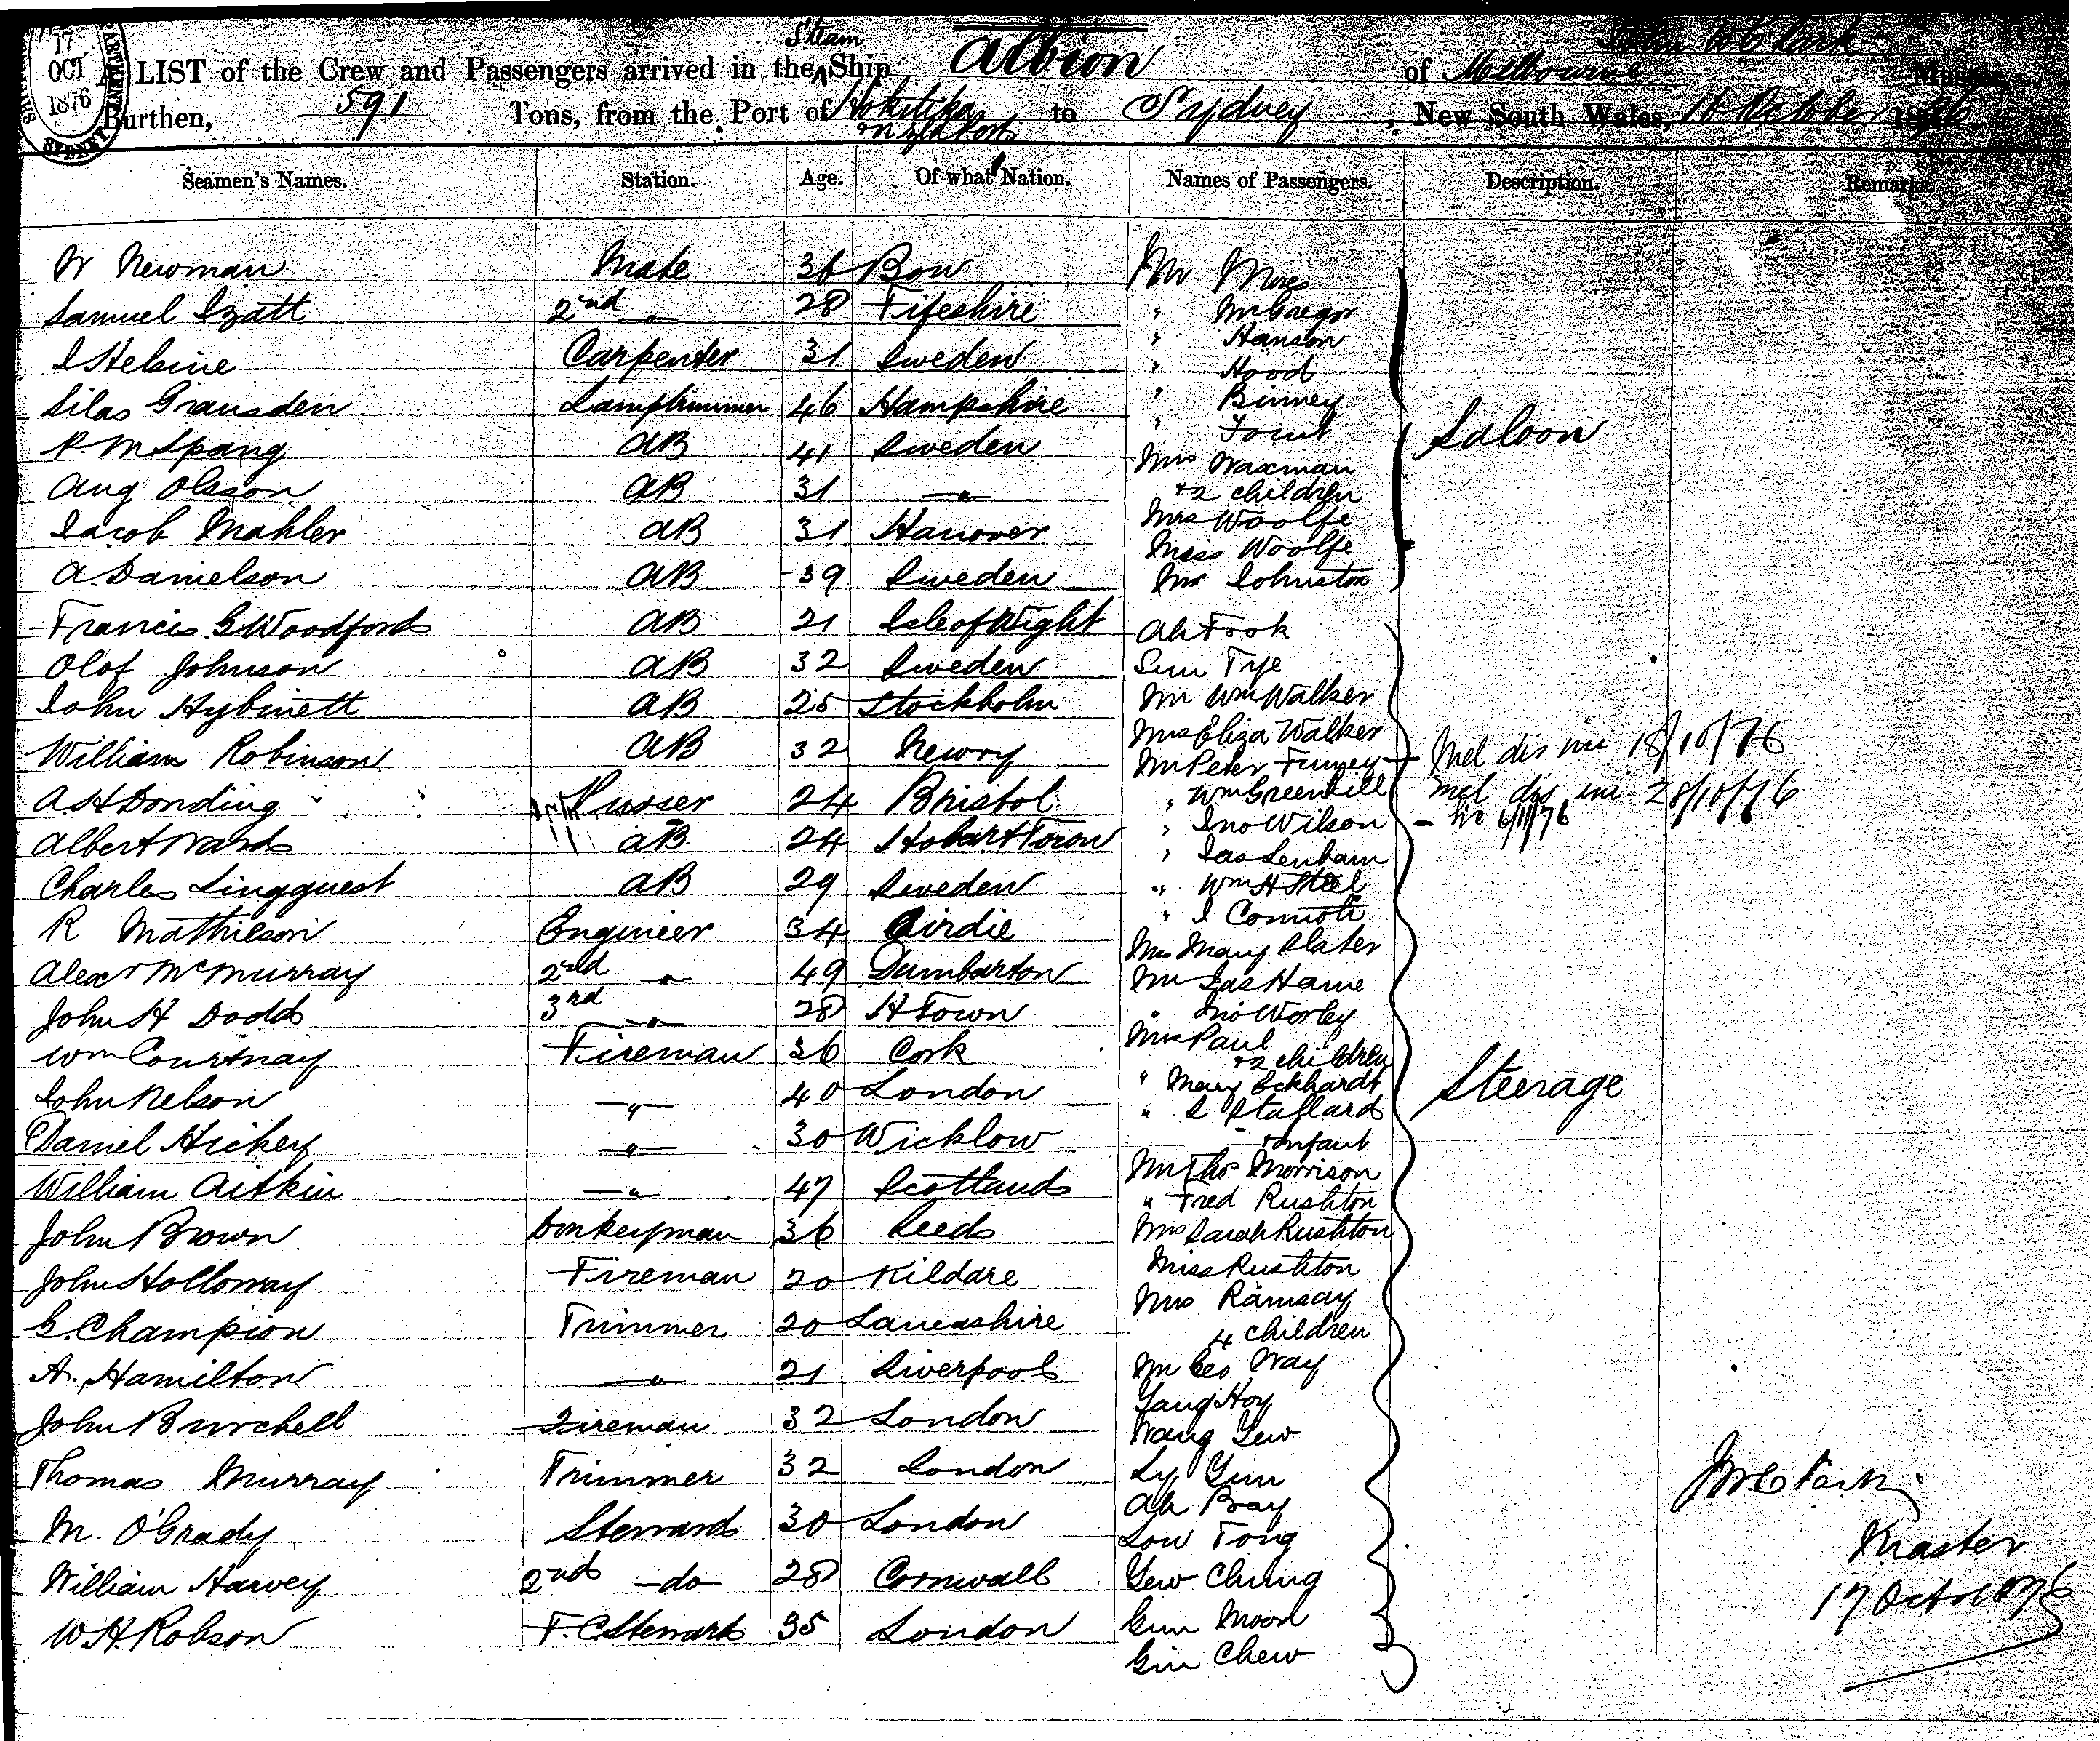 17
OCT
1876
SYDNEY
Steam
John W Clark
A LIST of the Crew and Passengers arrived in the Ship Albion of Melbourne Master,
Burthen, 591 Tons, from the Port of Hokitika to Sydney, New South Wales, 16 October 1876
Seamen's Names. Station. Age. Of what Nation. Names of Passengers. Description. Remarks.
W Newman Mate 36 Bow Mr
Samuel Izatt 2nd " 28 Fifeshire " McGregor
" Hanson
Carpenter 31 Sweden " Hood
Silas Gransden Lamptrimmer 46 Hampshire " Binney
" Joint
P. M Spang AB 41 Sweden Mrs Waxman Saloon
Aug Olsson AB 31 " +2 children
Jacob Mahler AB 31 Hanover Mrs Woolfe
Miss Woolfe
A. Danielson AB 39 Sweden Mr Johnston
Francis G Woodford AB 21 Isle of Wight Ah Fook
Olof Johnson AB 32 Sweden Sun Tye
John Hybinett AB 25 Stockholm Mr Wm Walker
Mrs Eliza Walker
William Robinson AB 32 Newry Mr Peter Finney Mel dis 18/10/76
A. H Donding Purser 24 Bristol " Wm Greenhill Mel dis 28/10/76
" Jno Wilson 6/11/76
Albert Ward AB 24 Hobart Town " Jas Lenham
Charles Lingquest AB 29 Sweden " Wm H Steel
R Mathieson Engineer 34 Airdie " J
Mrs Mary Slater
Alexr McMurray 2nd " 49 Dumbarton Mr Jas Hame
John H Dodd 3rd " 28 H Town " Jno Worley
Wm Courtnay Fireman 36 Cork Mrs Paul
+2 children
John Nelson " 40 London " Mary Eckhardt Steerage
" S Stallard
Daniel Hickey " 30 Wicklow + infant
William Aitkin " 47 Scotland Mr Thos Morrison
" Fred Rushton
John Brown Donkeyman 36 Leeds Mrs Sarah Rushton
John Holloway Fireman 20 Kildare Miss Rushton
Mrs Ramsay
G. Champion Trimmer 20 Lancashire 4 children
A. Hamilton " 21 Liverpool Mr Geo Way
Yang Hoy
John Burchell Fireman 32 London Wang Gew
Thomas Murray Trimmer 32 London Ly Gun
Ah Bray
M. O'Grady Steward 30 London Low Tong
William Harvey 2nd do 28 Cornwall Gew Chung
W H Robson F. C Steward 35 London Gun Moon
Gin Chew
J W Clark
Master
17 Oct 1876